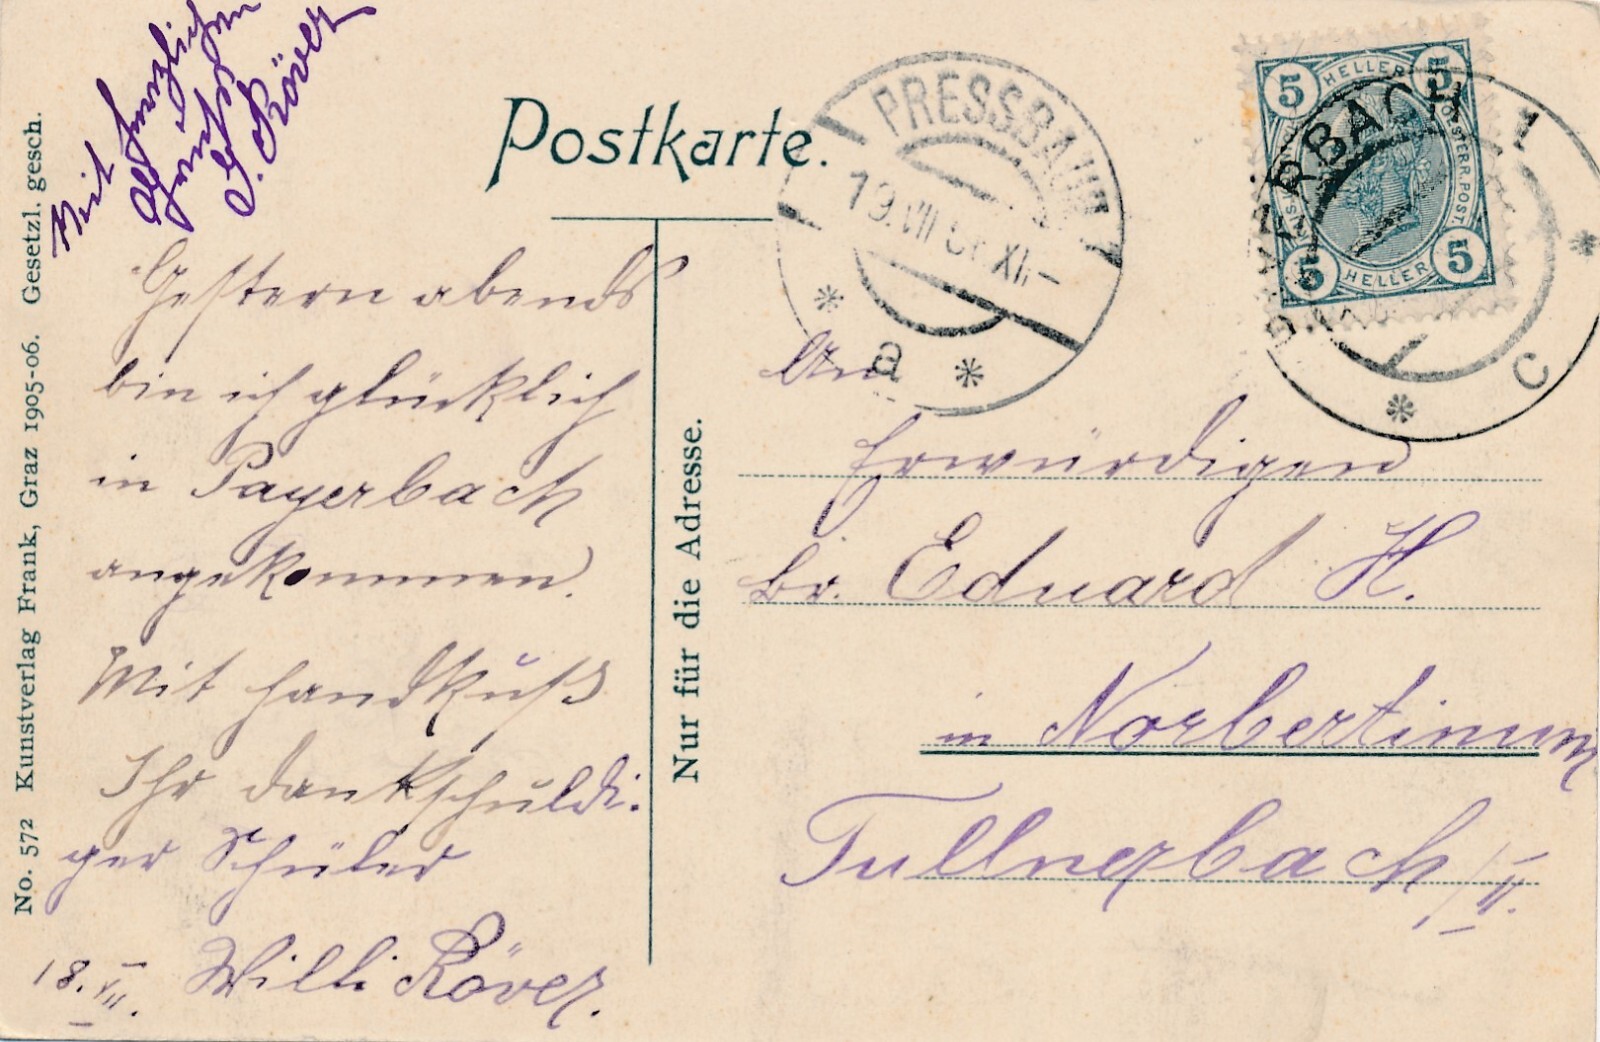 Mit herzlichen
Grüßen
Röver
Postkarte.
PRESSBAUM
19.VII XII
a
5 HELLER 5
5 HELLER 5
PAYERBACH 1
c
Gestern abends
bin ich glücklich
in Payerbach
angekommen.
Mit Handkuß
Ihr dankschuldi-
ger Schüler
18. VII. Willi Röver.
An
Erwürdigen
Br. Eduard H.
in Norbertinum
Tullnerbach / II.
Nur für die Adresse.
No. 572 Kunstverlag Frank, Graz 1905-06. Gesetzl. gesch.